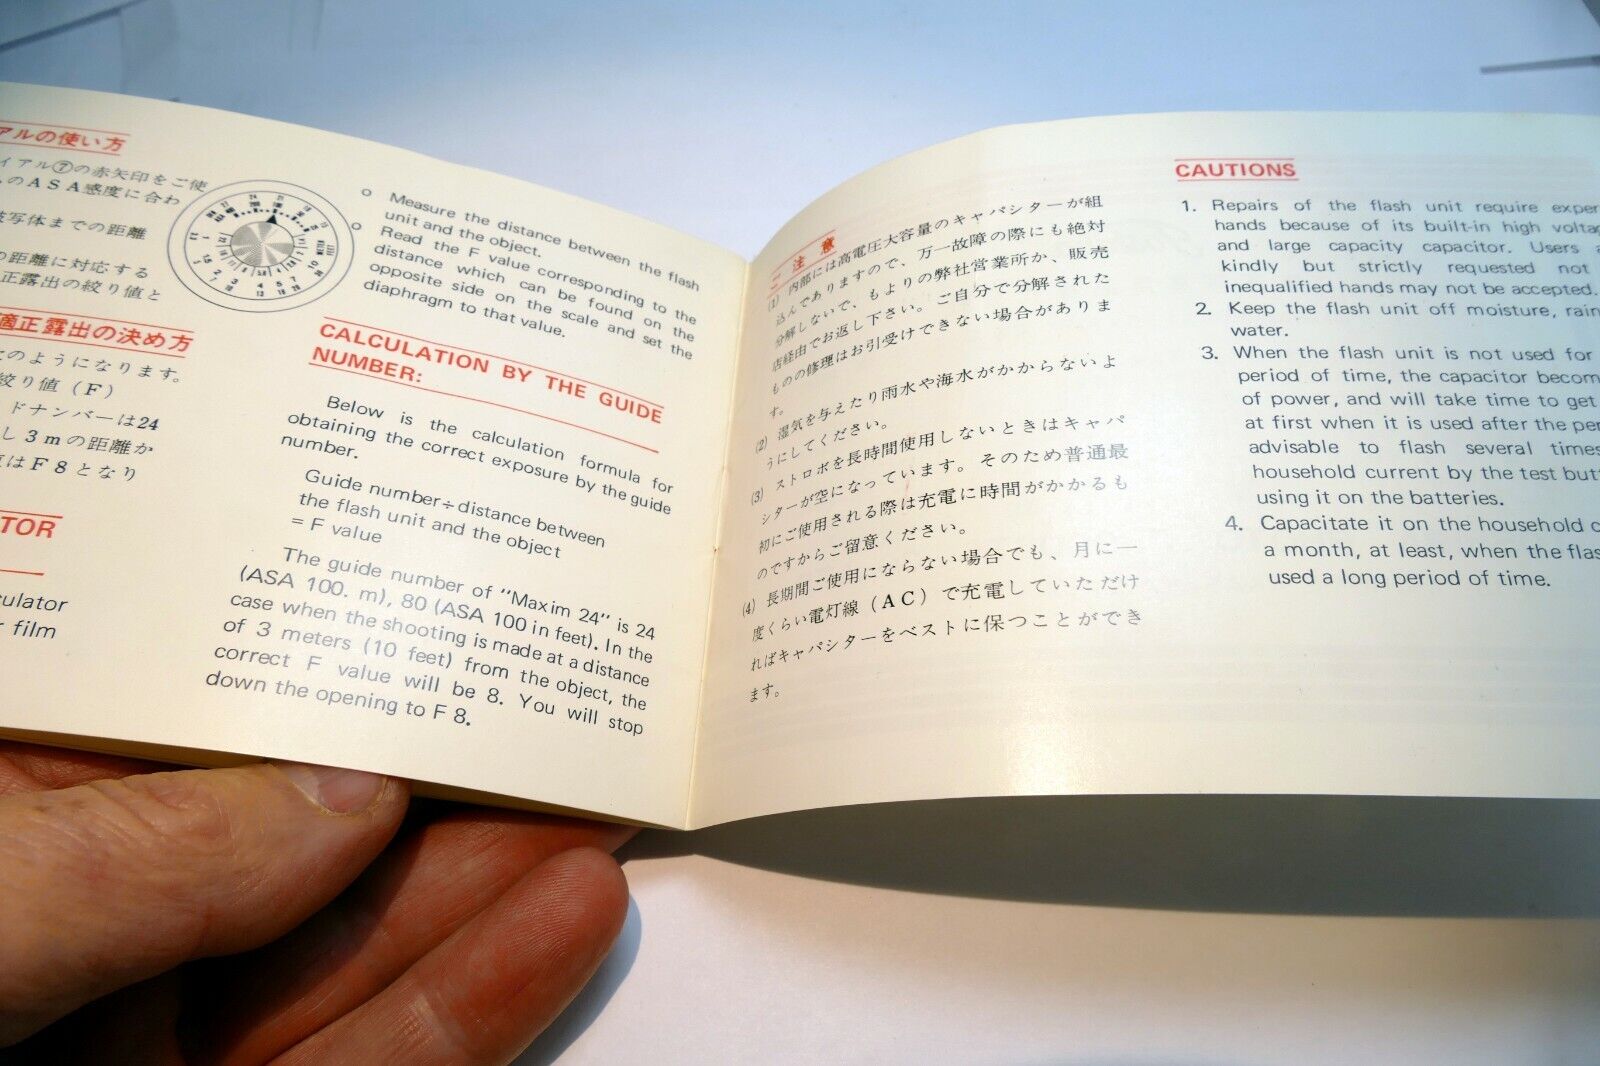 アルの使い方
イアル⑦の赤矢印をご使
のASA感度に合わ
写体までの距離
の距離に対応する
正露出の絞り値と
適正露出の決め方
のようになります。
絞り値（F）
ドナンバーは24
し3mの距離か
はF8となり
TOR
culator
r film
o Measure the distance between the flash
unit and the object.
o Read the F value corresponding to the
distance which can be found on the
opposite side on the scale and set the
diaphragm to that value.
CALCULATION BY THE GUIDE
NUMBER:
Below is the calculation formula for
obtaining the correct exposure by the guide
number.
Guide number÷distance between
the flash unit and the object
= F value
The guide number of "Maxim 24" is 24
(ASA 100. m), 80 (ASA 100 in feet). In the
case when the shooting is made at a distance
of 3 meters (10 feet) from the object, the
correct F value will be 8. You will stop
down the opening to F 8.
ご注意
(1) 内部には高電圧大容量のキャパシターが組
込んでありますので、万一故障の際にも絶対
分解しないで、もよりの弊社営業所か、販売
店経由でお返し下さい。ご自分で分解された
ものの修理はお引受けできない場合がありま
す。
(2) 湿気を与えたり雨水や海水がかからないよ
うにしてください。
(3) ストロボを長時間使用しないときはキャパ
シターが空になっています。そのため普通最
初にご使用される際は充電に時間がかかるも
のですからご留意ください。
(4) 長期間ご使用にならない場合でも、月に一
度くらい電灯線（AC）で充電していただけ
ればキャパシターをベストに保つことができ
ます。
CAUTIONS
1. Repairs of the flash unit require exper
hands because of its built-in high volta
and large capacity capacitor. Users
kindly but strictly requested not
inequalified hands may not be accepted.
2. Keep the flash unit off moisture, rain
water.
3. When the flash unit is not used for
period of time, the capacitor becom
of power, and will take time to get
at first when it is used after the per
advisable to flash several times
household current by the test butt
using it on the batteries.
4. Capacitate it on the household c
a month, at least, when the flas
used a long period of time.